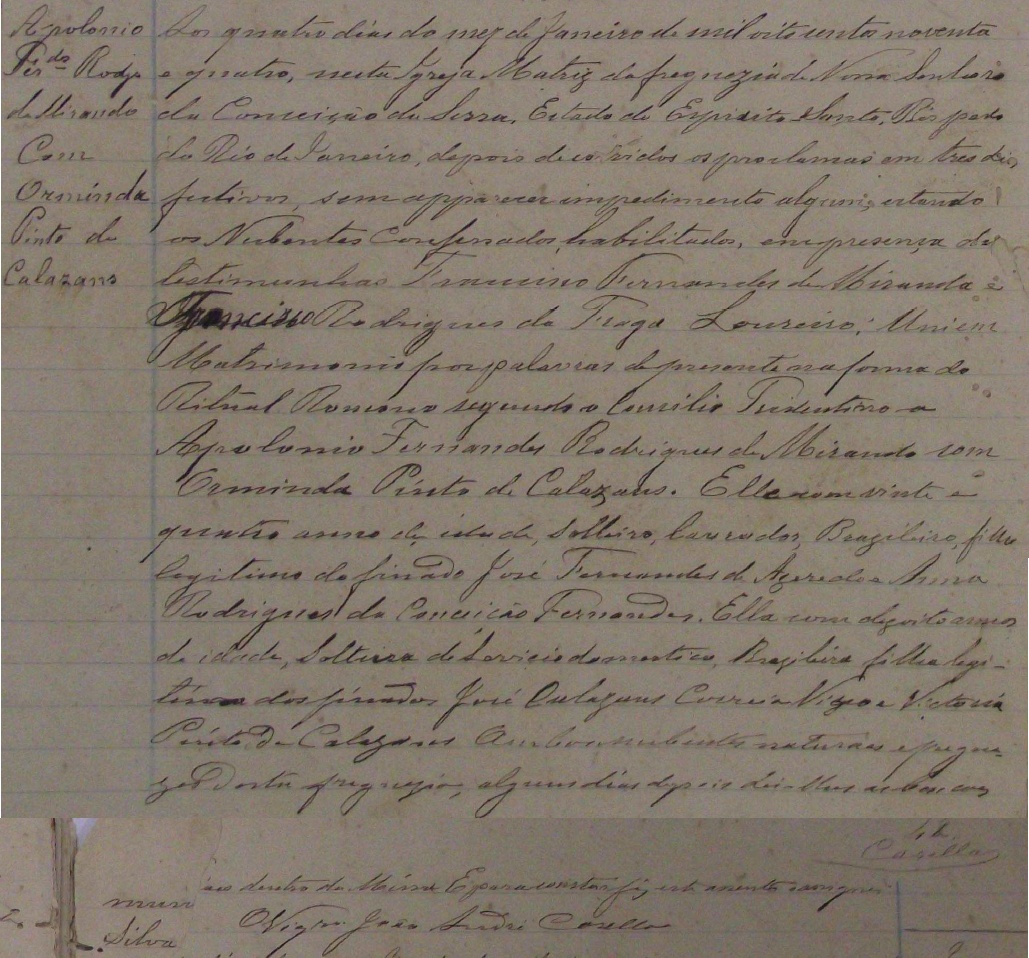 Apolonio
Fer.des Rodgs
de Miranda
Com
Orminda
Pinto de
Calazans
Aos quatro dias do mez de Janeiro de mil oito centos noventa
e quatro, nesta Igreja Matriz da freguezia de Nossa Senhora
da Conceição da Serra, Estado do Espirito Santo, Bispado
do Rio de Janeiro, depois de corridos os proclamas em tres dias
festivos, sem apparecer impedimento algum, estando
os Nubentes Confessados, habilitados, em presença das
testimunhas Francisco Fernandes de Miranda e
Francisco Rodrigues da Fraga Loureiro; Uniem
Matrimonio por palavras de presente na forma do
Ritual Romano segundo o Concilio Tridentino a
Apolonio Fernandes Rodrigues de Miranda com
Orminda Pinto de Calazans. Elle com vinte e
quatro anno de idade, Solteiro, lavrador, Brazileiro, filho
legitimo do finado José Fernandes de Azeredo e Anna
Rodrigues da Conceicão Fernandes. Ella com dezoito annos
de idade, Solteira de Servicio domestico, Brazileira filha legi-
tima dos finados José Calazans Correia Vigo e Victoria
Pinto De Calazans Ambos nubentes naturaes e fregue-
zes D'esta freguezia, alguns dias depois dei-lhes as bençoes
42
Casella
dentro da Missa E para constar fiz este assento e assignei
O Vigro. João André Casella
Silva